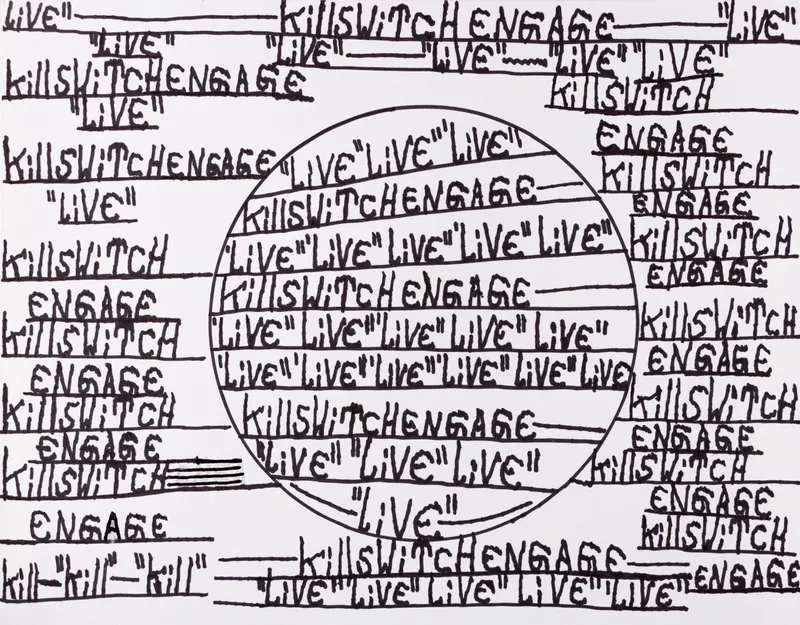 "LiVE" KillSWiTCH ENGAGE "LiVE"
"LiVE" "LiVE" "LiVE" "LiVE" "LiVE"
KillSWiTCHENGAGE
KillSWiTCH
"LiVE"
ENGAGE
KillSWiTCHENGAGE
KillSWiTCH
"LiVE"
ENGAGE
KillSWiTCH
KillSWiTCH
ENGAGE
ENGAGE
KillSWiTCH
KillSWiTCH
ENGAGE
ENGAGE
KillSWiTCH
KillSWiTCH
ENGAGE
ENGAGE
KillSWiTCH
KillSWiTCH
ENGAGE
ENGAGE
Kill-"Kill"-"Kill"
KillSWiTCH
ENGAGE
"LiVE" "LiVE" "LiVE"
KillSWiTCHENGAGE
"LiVE" "LiVE" "LiVE" "LiVE" "LiVE"
KillSWiTCH ENGAGE
"LiVE" "LiVE" "LiVE" "LiVE" "LiVE"
"LiVE" "LiVE" "LiVE" "LiVE" "LiVE" "LiVE
KillSWiTCHENGAGE
"LiVE" "LiVE" "LiVE"
"LiVE"
KillSWiTCH ENGAGE
"LiVE" "LiVE" "LiVE" "LiVE" "LiVE"